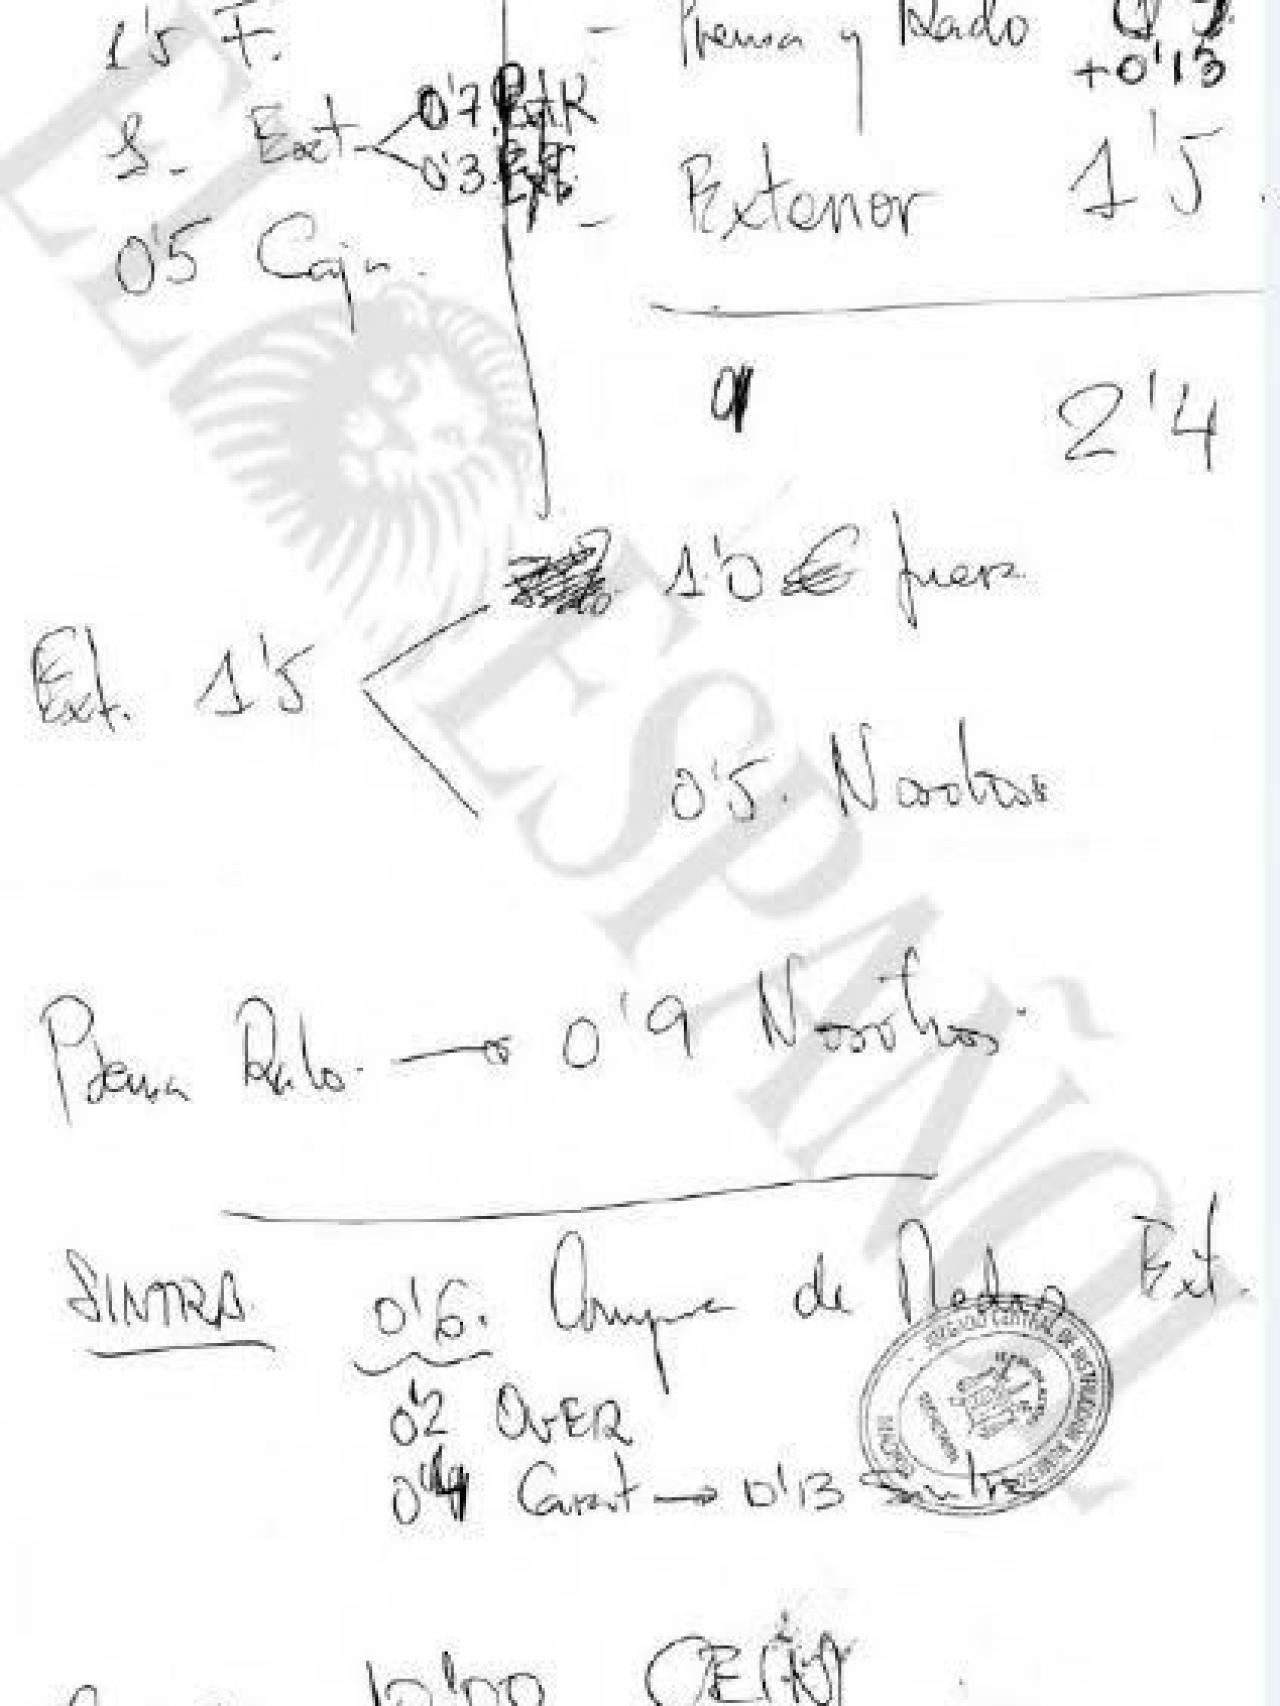 1'5 F.
- Prensa y Radio
+0'13
1 - Ext. 0'7 Ext.R
0'3 Ext.
- Exterior 1'5
0'5 Caja.
2'4
1'0 € fuera
Ext. 1'5
0'5. Nosotros
Prensa Radio. → 0'9 Nosotros.
SINTRA. 0'6. Compra de Medios Ext.
0'2 OVER
0'4 Carat → 0'13 Sintra
JUZGADO CENTRAL DE INSTRUCCION
MADRID
10'00
EL ESPAÑOL